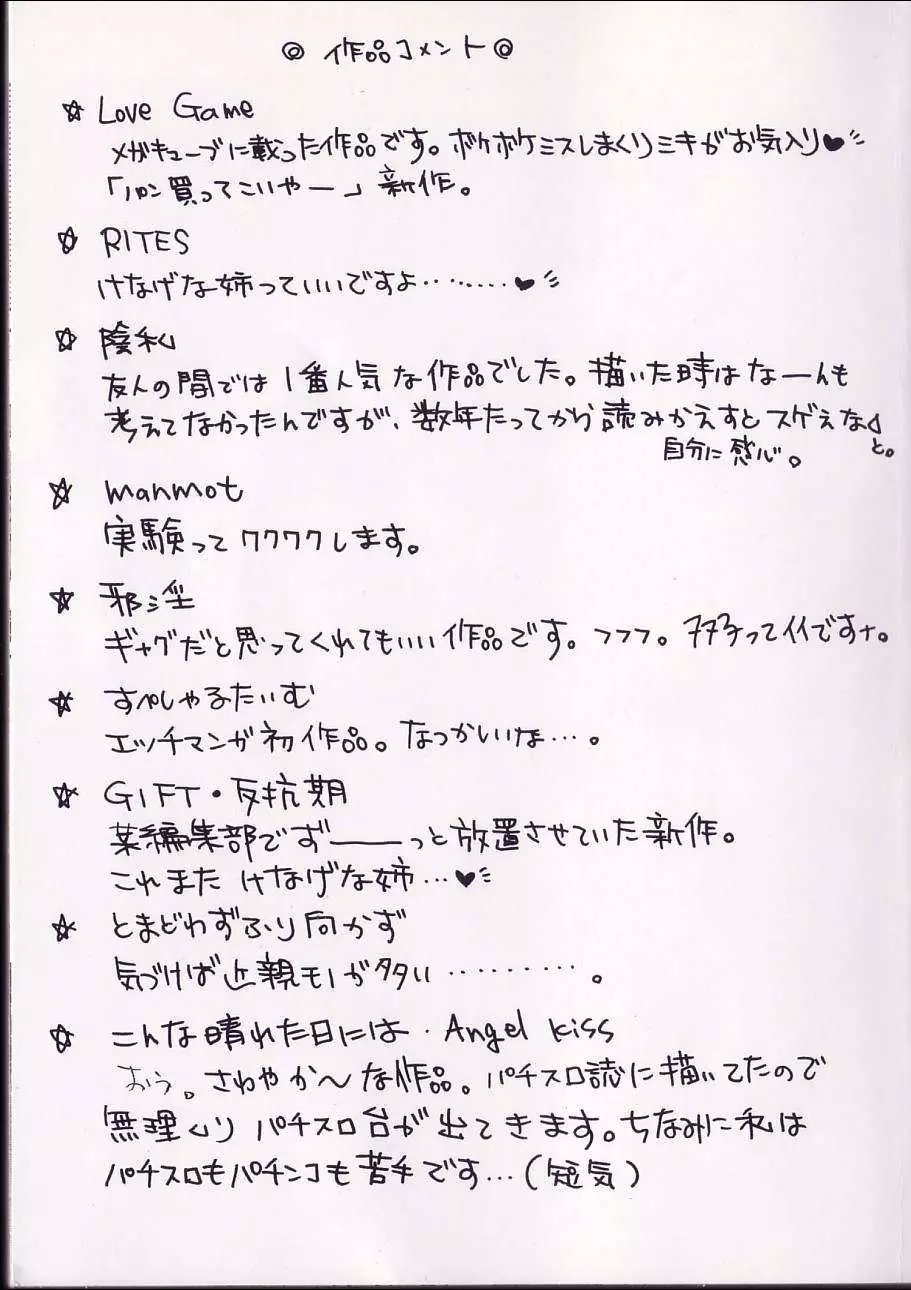 ◎ 作品コメント ◎
☆ Love Game
メガキューブに載った作品です。ボケボケミスしまくりミキがお気入り♥
「パン買ってこいやー」新作。
☆ RITES
けなげな姉っていいですよ………♥
☆ 陰私
友人の間では1番人気な作品でした。描いた時はなーんも
考えてなかったんですが、数年たってから読みかえすとスゲえな
と。
自分に感心。
☆ manmot
実験ってワクワクします。
☆ 邪淫
ギャグだと思ってくれてもいい作品です。フフフ。フタナリってイイですナ。
☆ すぺしゃるたいむ
エッチマンガ初作品。なつかいいな…。
☆ GIFT・反抗期
某編集部でずーーーっと放置させていた新作。
これまた けなげな姉…♥
☆ とまどわずふり向かず
気づけば近親モノが多い………。
☆ こんな晴れた日には・Angel kiss
おう。さわやか〜な作品。パチスロ誌に描いてたので
無理くり パチスロ台が出てきます。ちなみに私は
パチスロもパチンコも苦手です…(短気)